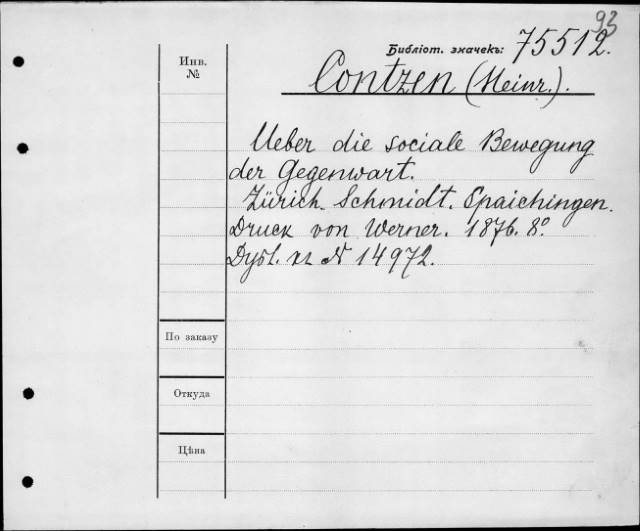 93
Библіот. значекъ: 75512.
Инв.
№
Contzen (Heinr.).
Ueber die sociale Bewegung
der Gegenwart.
Zürich. Schmidt. Spaichingen.
Druck von Werner. 1876. 8°.
№ 14972.
По заказу
Откуда
Цѣна